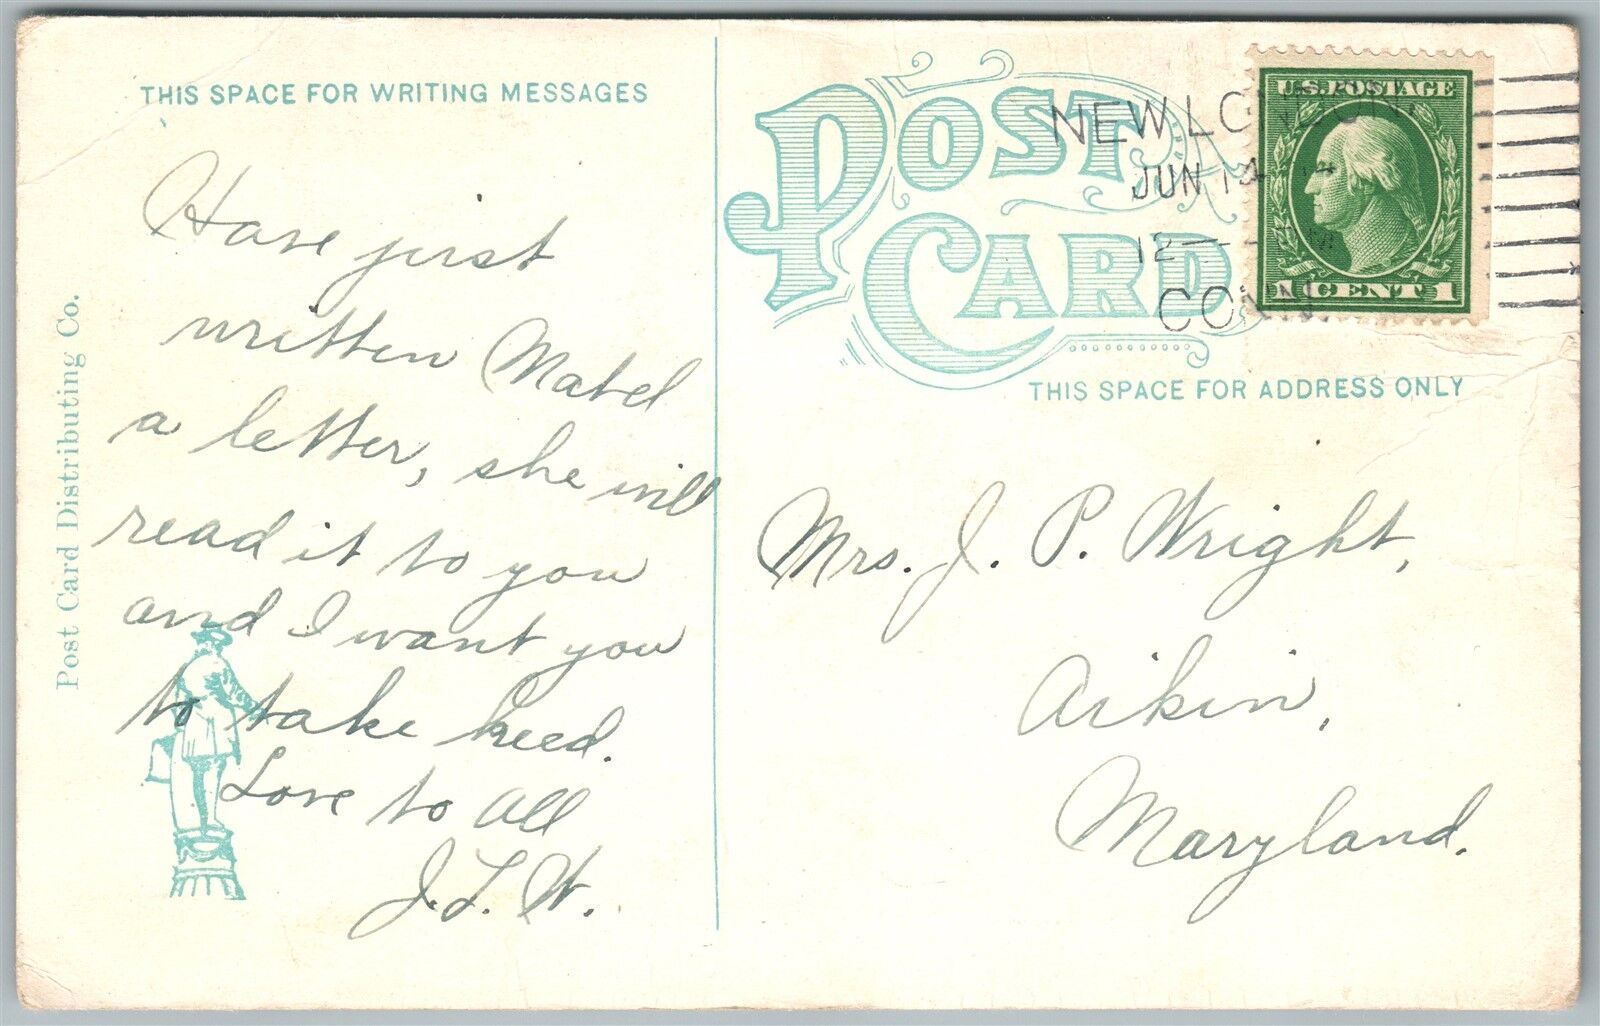 THIS SPACE FOR WRITING MESSAGES
Have just
written Mabel
a letter, she will
read it to you
and I want you
to take heed.
Love to all
J. L. W.
Post Card Distributing Co.
POST
CARD
NEW LONDON,
JUN 14
12
CONN.
U.S. POSTAGE
1 CENT 1
THIS SPACE FOR ADDRESS ONLY
Mrs. J. P. Wright,
Aikin,
Maryland.